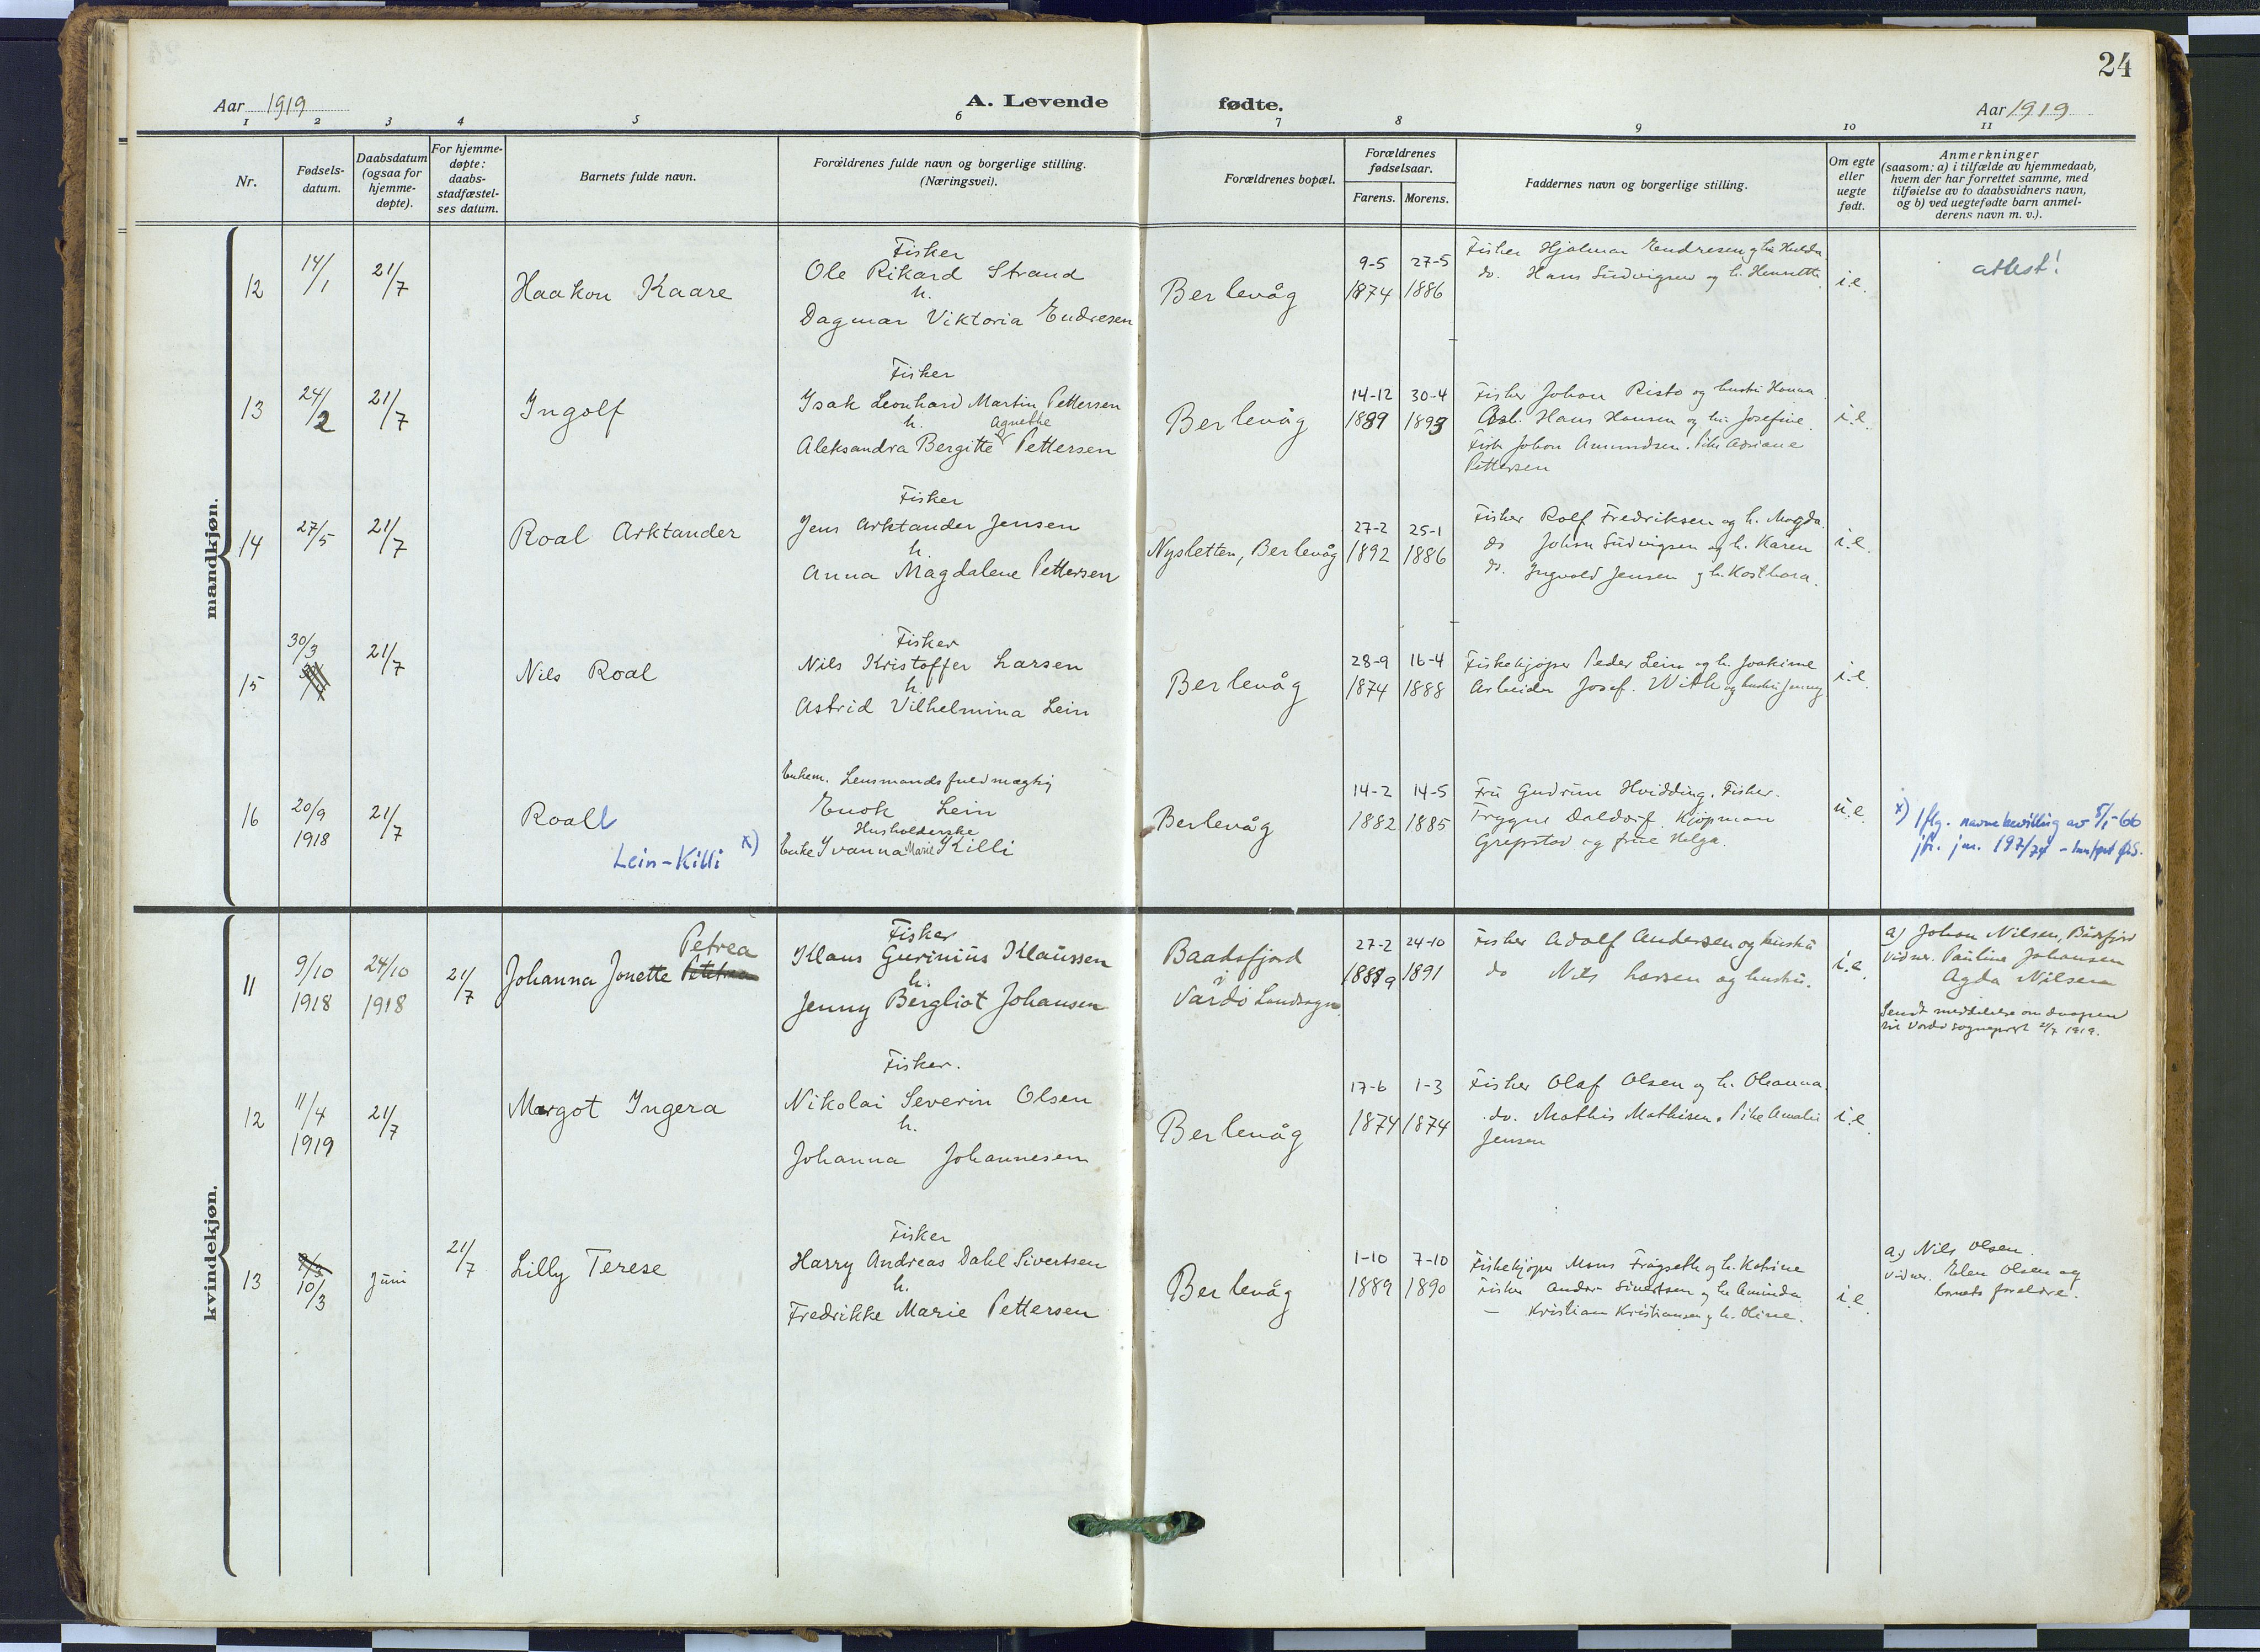 24
Aar 1919
A. Levende
fødte.
Aar 1919
1 2 3 4 5 6 7 8 9 10 11
Nr.
Fødsels-
datum.
Daabsdatum
(ogsaa for
hjemme-
døpte).
For hjemme-
døpte:
daabs-
stadfæstel-
ses datum.
Barnets fulde navn.
Forældrenes fulde navn og borgerlige stilling.
(Næringsvei).
Forældrenes bopæl.
Forældrenes
fødselsaar.
Farens. Morens.
Faddernes navn og borgerlige stilling.
Om egte
eller
uegte
født.
Anmerkninger
(saasom: a) i tilfælde av hjemmedaab,
hvem der har forrettet samme, med
tilføielse av to daabsvidners navn,
og b) ved uegtefødte barn anmel-
derens navn m. v.).
mandkjøn.
12
14/1
21/7
Haakon Kaare
Fisker
Ole Rikard Strand
h.
Dagmar Viktoria Endresen
Berlevåg
9-5 27-5
1874 1886
Fisker Hjalmar Endresen og h. Hulda
do. Hans Ludvigsen og h. Henrette
i.e.
attest!
13
24/2
21/7
Ingolf
Fisker
Isak Leonhard Martin Pettersen
h. Agnethe
Aleksandra Bergitte Pettersen
Berlevåg
14-12 30-4
1889 1893
Fisker Johan Risto og hustru Hanna
Arb. Hans Hansen og h. Josefine.
Fisk Johan Amundsen. Pike Adriane
Pettersen
i.e.
14
27/5
21/7
Roal Arktander
Fisker
Jens Arktander Jensen
h.
Anna Magdalene Pettersen
Nysletten, Berlevåg
27-2 25-1
1892 1886
Fisker Rolf Fredriksen og h. Magda.
do Johan Ludvigsen og h. Karen
do. Ingvald Jensen og h. Kasthora.
i.e.
15
30/3
21/7
Nils Roal
Fisker
Nils Kristoffer Larsen
h.
Astrid Vilhelmina Lein
Berlevåg
28-9 16-4
1874 1888
Fiskekjøper Peder Lein og h. Joakime
Arbeider Josef. With og hustru Jenny
i.e.
16
20/9
1918
21/7
Roall
Lein-Killi x)
Enkem. Lensmandsfuldmægtig
Enok Lein
Husholderske
Enke Ivanna Marie Killi
Berlevåg
14-2 14-5
1882 1885
Fru Gudrun Hvidding. Fisker.
Trygve Daldorf. Kjøpman
Grepstad og frue Helga.
u.e.
x) Iflg. navnebevilling av 5/1-66
jfr. jnr. 197/74
kvindekjøn.
11
9/10
1918
24/10
1918
21/7
Petrea
Johanna Jonette
Fisker
Klaus Gurinius Klaussen
h.
Jenny Bergliot Johansen
Baadsfjord
i
Vardø Landsogn
27-2 24-10
1889 1891
Fisker Adolf Andersen og hustru
do Nils Larsen og hustru.
i.e.
a) Johan Nilsen, Båtsfjord
vidner. Pauline Johansen
Agda Nilsen
Sendt meddelelse om daapen
til Vardø sogneprest 21/7 1919.
12
11/4
1919
21/7
Margot Ingera
Fisker.
Nikolai Severin Olsen
h.
Johanna Johannesen
Berlevåg
17-6 1-3
1874 1874
Fisker Olaf Olsen og h. Ohanna.
do. Mathis Mathisen. Pike Amalie
Jensen
i.e.
13
9/3
10/3
juni
21/7
Lilly Terese
Fisker
Harry Andreas Dahl Sivertsen
h.
Fredrikke Marie Pettersen
Berlevåg
1-10 7-10
1889 1890
Fiskekjøper Mons Frøgseth og h. Katrine
Fisker Ander Sivertsen og h. Aminda
– Kristian Kristiansen og h. Oline.
i.e.
a) Nils Olsen.
vidner. Elen Olsen og
barnets foreldre.